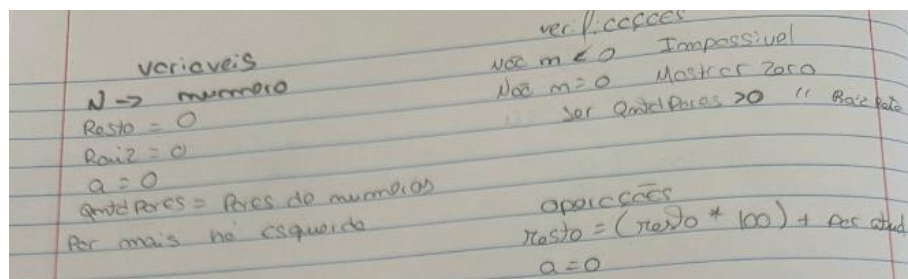 variaveis
N -> numero
Resto = 0
Raiz = 0
a = 0
QntdPares = Pares de numeros
Par mais há esquerda
verificações
Não n < 0 Impossivel
Não n = 0 Mostrar Zero
Ser QntdPares > 0 "
operações
resto = (resto * 100) + par atual
a = 0